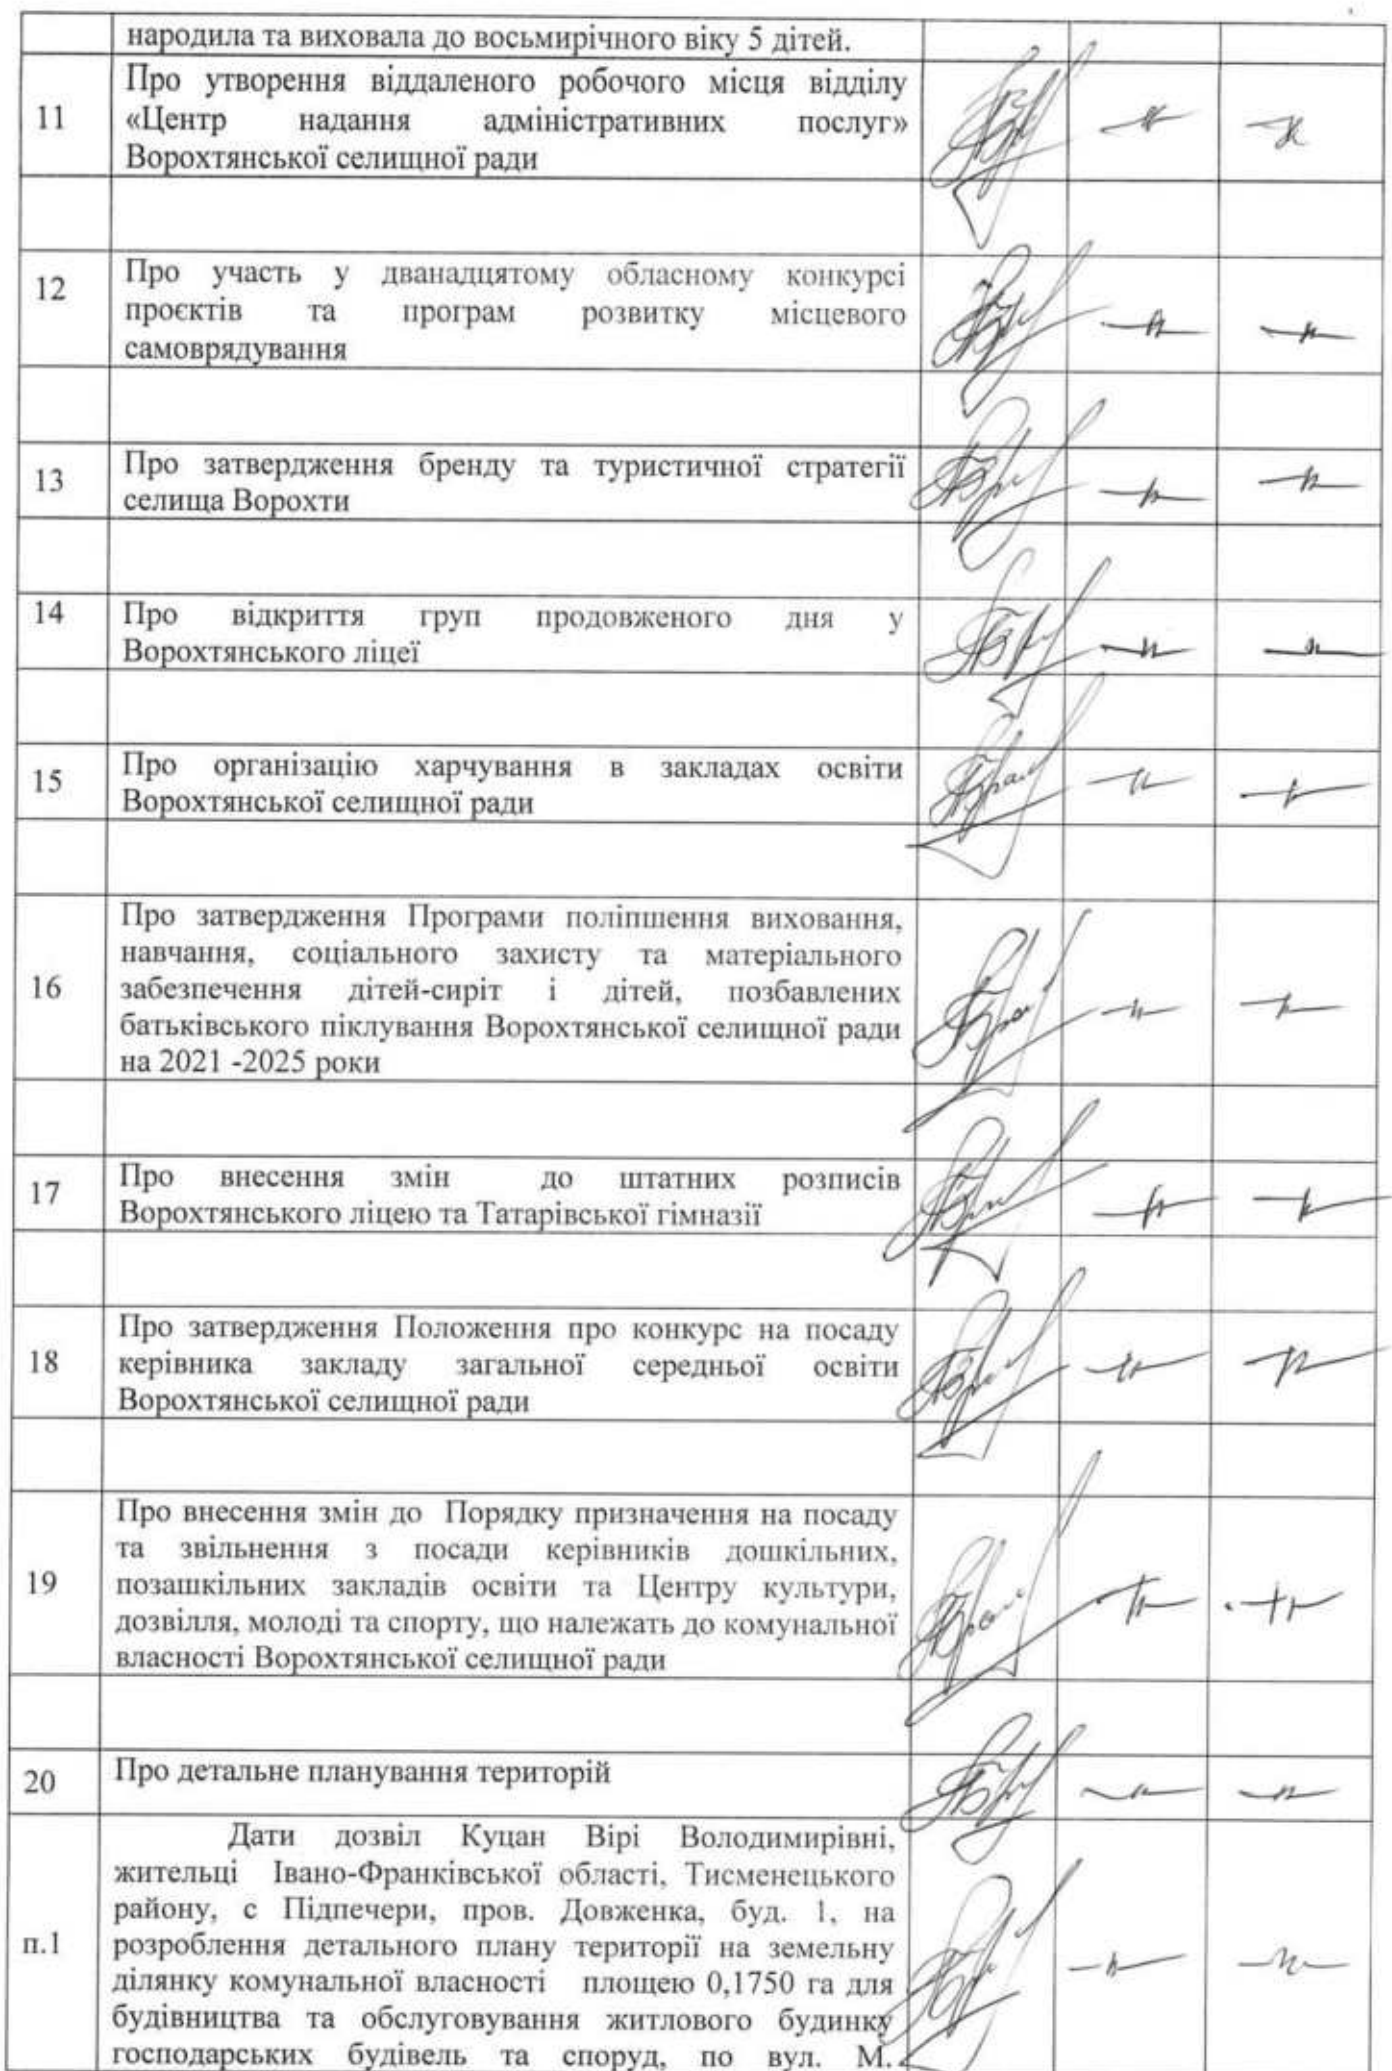 народила та виховала до восьмирічного віку 5 дітей.
11
Про утворення віддаленого робочого місця відділу
«Центр надання адміністративних послуг»
Ворохтянської селищної ради
12
Про участь у дванадцятому обласному конкурсі
проєктів та програм розвитку місцевого
самоврядування
13
Про затвердження бренду та туристичної стратегії
селища Ворохти
14
Про відкриття груп продовженого дня у
Ворохтянського ліцеї
15
Про організацію харчування в закладах освіти
Ворохтянської селищної ради
16
Про затвердження Програми поліпшення виховання,
навчання, соціального захисту та матеріального
забезпечення дітей-сиріт і дітей, позбавлених
батьківського піклування Ворохтянської селищної ради
на 2021 -2025 роки
17
Про внесення змін до штатних розписів
Ворохтянського ліцею та Татарівської гімназії
18
Про затвердження Положення про конкурс на посаду
керівника закладу загальної середньої освіти
Ворохтянської селищної ради
19
Про внесення змін до Порядку призначення на посаду
та звільнення з посади керівників дошкільних,
позашкільних закладів освіти та Центру культури,
дозвілля, молоді та спорту, що належать до комунальної
власності Ворохтянської селищної ради
20
Про детальне планування територій
п.1
Дати дозвіл Куцан Вірі Володимирівні,
жительці Івано-Франківської області, Тисменецького
району, с Підпечери, пров. Довженка, буд. 1, на
розроблення детального плану території на земельну
ділянку комунальної власності площею 0,1750 га для
будівництва та обслуговування житлового будинку
господарських будівель та споруд, по вул. М.